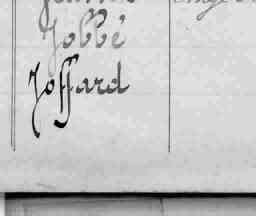 Jobbé
Joffard